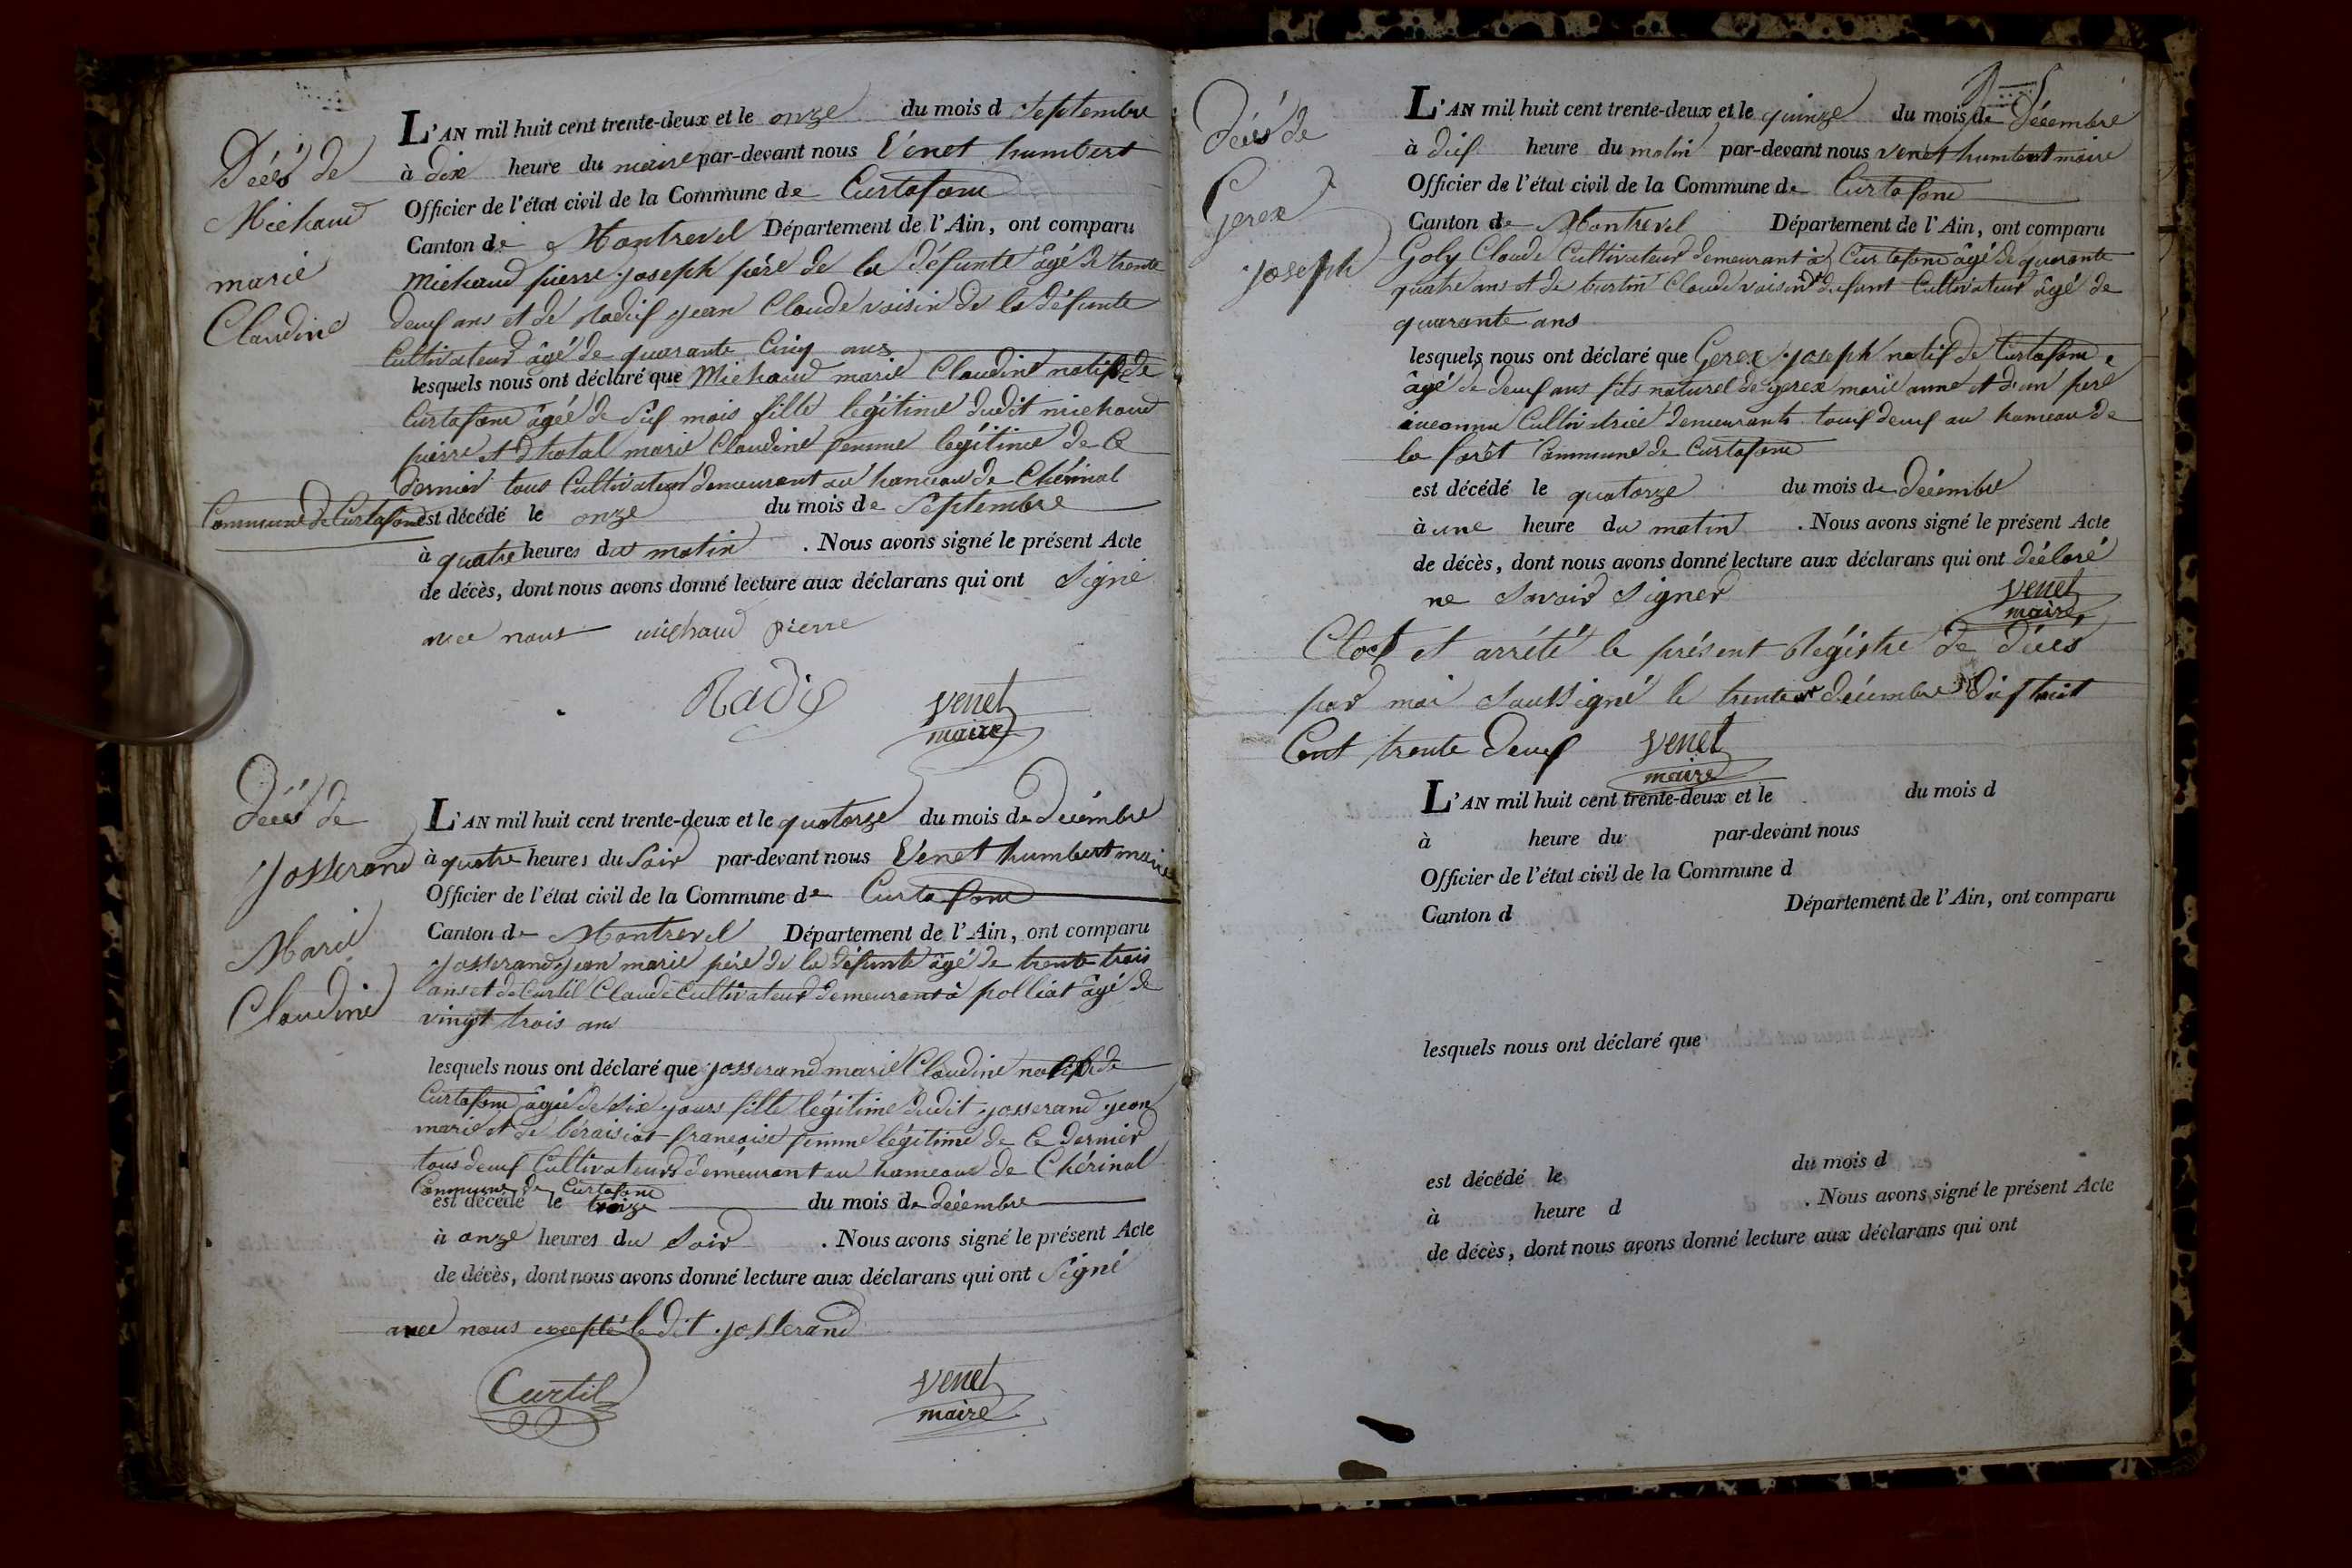 Décès de
Michaud
marie
Claudine
L'AN mil huit cent trente-deux et le onze du mois d Septembre
à dix heure du maire par-devant nous Vénet humbert
Officier de l'état civil de la Commune de Curtafond
Canton de Montrevel Département de l'Ain, ont comparu
Michaud pierre joseph père de la défunte âgé de trente
deuf ans et de Radif jean Claude voisin de la défunte
Cultivateur âgé de quarante Cinq ans
lesquels nous ont déclaré que Michaud marie Claudine natif de
Curtafond âgée de Sif mois fille légitime dudit michaud
pierre et d marie Claudine femme legitime de Ce
dernier tous Cultivateur demeurant au hameau de Chérinal
Commune de Curtafond est décédé le onze du mois de Septembre
à quatre heures du matin . Nous avons signé le présent Acte
de décès, dont nous avons donné lecture aux déclarans qui ont Signé
avec nous michaud pierre
Radif venet
maire
Décès de
Josserand
Marie
Claudine
L'AN mil huit cent trente-deux et le quatorze du mois de Décembre
à quatre heures du Soir par-devant nous Vénet humbert maire
Officier de l'état civil de la Commune de Curtafond
Canton de Montrevel Département de l'Ain, ont comparu
Josserand jean marie père de la défunte âgé de trente trois
ans et de Curtil Claude Cultivateur demeurant à polliat âgé de
vingt trois ans
lesquels nous ont déclaré que josserand marie Claudine natif de
Curtafond âgée de Six jours fille légitime dudit josserand jean
marie et de béraisiat françoise femme légitime de Ce dernier
tous deuf Cultivateurs demeurant au hameau de Chérinal
Commune de Curtafond
est décédé le treize du mois de décembre
à onze heures du Soir . Nous avons signé le présent Acte
de décès, dont nous avons donné lecture aux déclarans qui ont Signé
avec nous excepté le dit josserand
Curtil venet
maire
Décès de
Gerex
joseph
L'AN mil huit cent trente-deux et le quinze du mois de Décembre
à dif heure du matin par-devant nous venet humbert maire
Officier de l'état civil de la Commune de Curtafond
Canton de Montrevel Département de l'Ain, ont comparu
Goly Claude Cultivateur demeurant à Curtafond âgé de quarante
quatre ans et deburtin Claude voisin d defunt Cultivateur âgé de
quarante ans
lesquels nous ont déclaré que Gerex joseph natif de Curtafond
âgé de deuf ans fils naturel de gerex marie anne et d'un père
inconnu Cultivatrice demeurants touf deuf au hameau de
la forêt Commune de Curtafond
est décédé le quatorze du mois de décembre
à une heure du matin . Nous avons signé le présent Acte
de décès, dont nous avons donné lecture aux déclarans qui ont déclaré
ne Savoir Signer venet
maire
Clos et arrêté le présent Régistre de décès
par moi Soussigné le trente décembre dif huit
Cent trente deuf venet
maire
L'AN mil huit cent trente-deux et le du mois d
à heure du par-devant nous
Officier de l'état civil de la Commune d
Canton d Département de l'Ain, ont comparu
lesquels nous ont déclaré que
est décédé le du mois d
à heure d . Nous avons signé le présent Acte
de décès, dont nous avons donné lecture aux déclarans qui ont